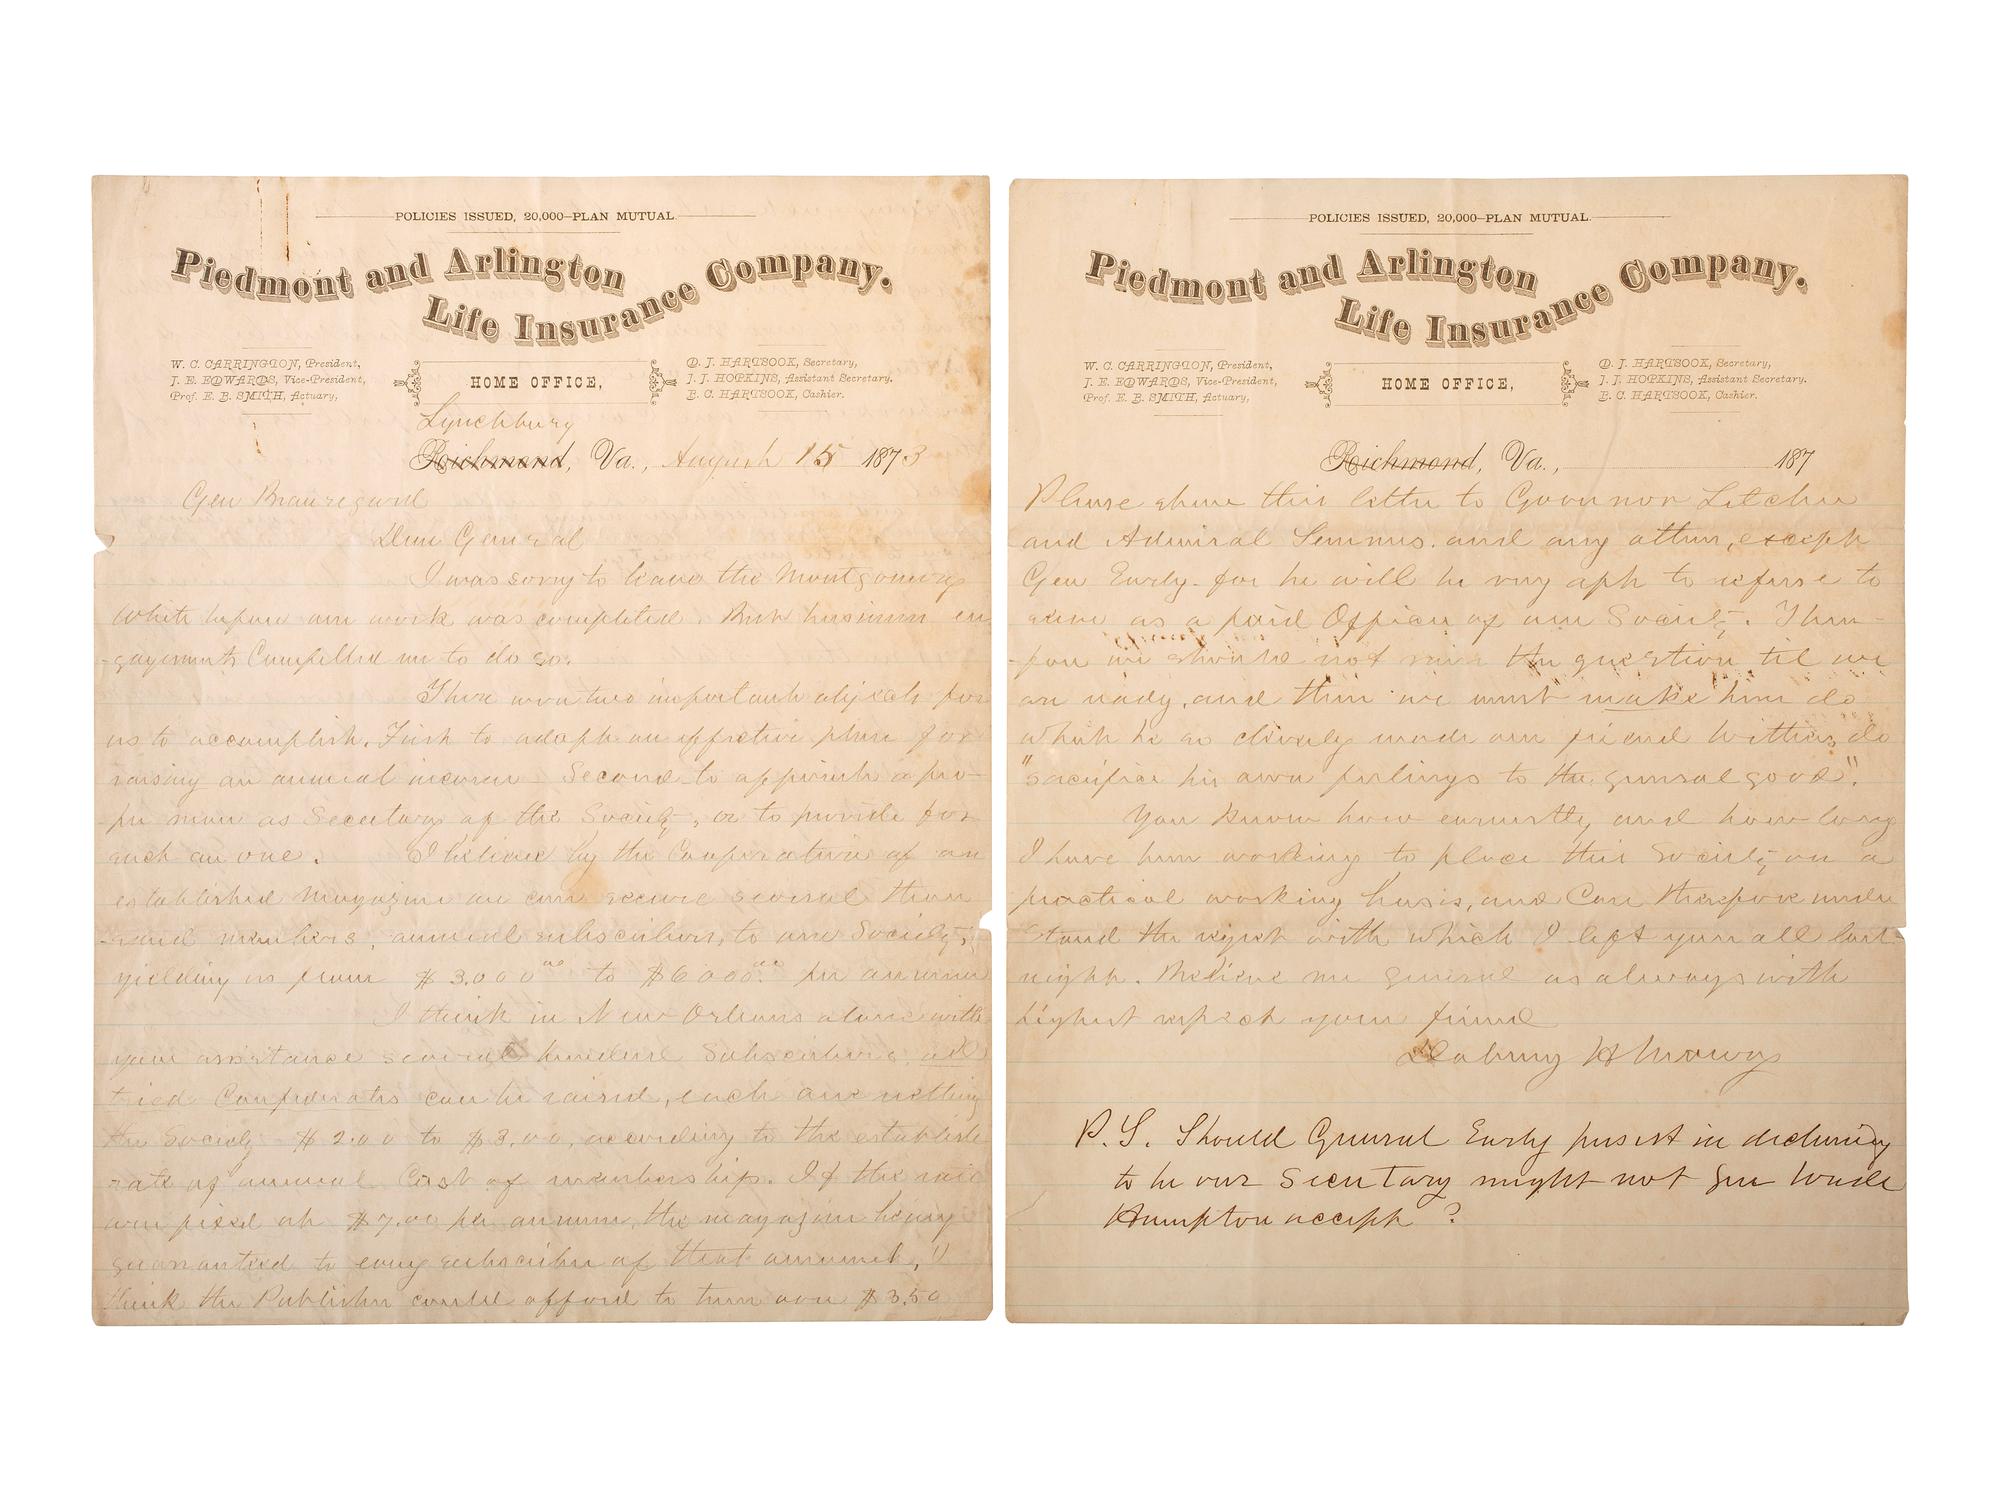 POLICIES ISSUED, 20,000—PLAN MUTUAL.
Piedmont and Arlington
Life Insurance Company.
W. C. CARRINGTON, President,
J. E. EDWARDS, Vice-President,
Prof. E. B. SMITH, Actuary,
HOME OFFICE,
D. J. HARTSOOK, Secretary,
J. J. HOPKINS, Assistant Secretary.
B. C. HARTSOOK, Cashier.
Lynchburg
Richmond, Va., August 15 1873
Gen Beauregard
Dear General
I was sorry to leave the Montgomery
White before our work was completed. But business en
-gagements Compelled me to do so.
There were two important objects for
us to accomplish. First to adopt an effective plan for
raising an annual income Second to appoint a pro-
per man as Secretary of the Society, or to provide for
such an one. I believe by the Cooperation of an
established Magazine we can secure several thou
-sand members, annual subscribers, to our Society,
yielding us from $3.000 00 to $6000.00 per annum
I think in New Orleans alone with
your assistance several hundred Subscribers, all
tried Confederates can be raised, each one netting
the Society $2.00 to $3.00, according to the establish
rate of annual Cost of membership. If the rate
were fixed at $7.00 per annum, the magazine being
guaranteed to every subscriber of that amount, I
think the Publisher could afford to turn over $3.50
POLICIES ISSUED, 20,000—PLAN MUTUAL.
Piedmont and Arlington
Life Insurance Company.
W. C. CARRINGTON, President,
J. E. EDWARDS, Vice-President,
Prof. E. B. SMITH, Actuary,
HOME OFFICE,
D. J. HARTSOOK, Secretary,
J. J. HOPKINS, Assistant Secretary.
B. C. HARTSOOK, Cashier.
Richmond, Va., 187
Please show this letter to Governor Letcher
and Admiral Semmes. and any other, except
Gen Early. for he will be very apt to refuse to
serve as a paid Officer of our Society. There-
-fore we should not raise the question til we
are ready, and then we must make him do
what he so cleverly made our friend Withers do
"sacrifice his own feelings to the general good".
You Know how earnestly and how long
I have been working to place this Society on a
practical working basis, and Can therefore under
stand the regret with which I left you all last
night. Believe me general as always with
highest respect your friend
Dabney H Maury
P.S. Should General Early persist in declining
to be our Secretary might not Gen Wade
Hampton accept?